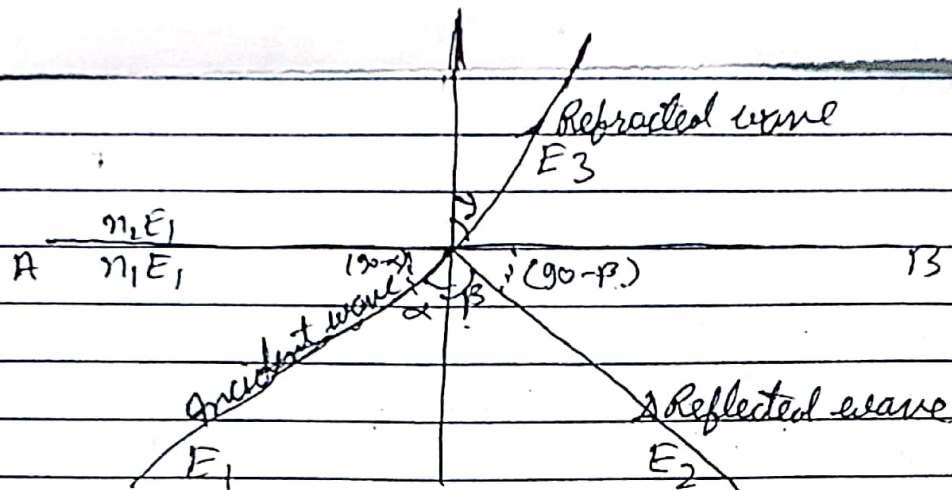 Refracted wave
E3
γ
n₂E₁
A
n₁E₁
(90-α)
(90-β)
B
Incident wave
α
β
Reflected wave
E₁
E₂